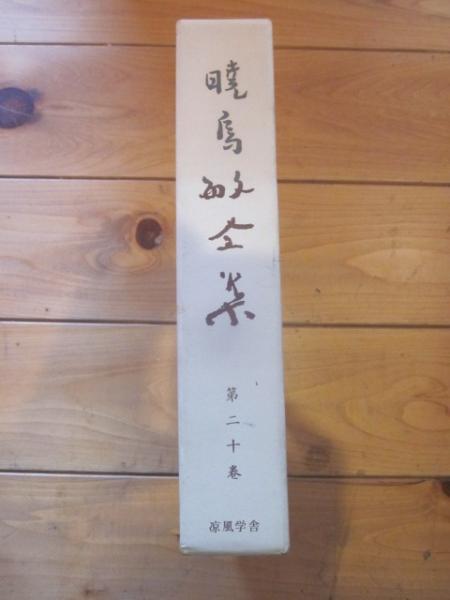 暁烏敏全集
第二十巻
涼風学舎